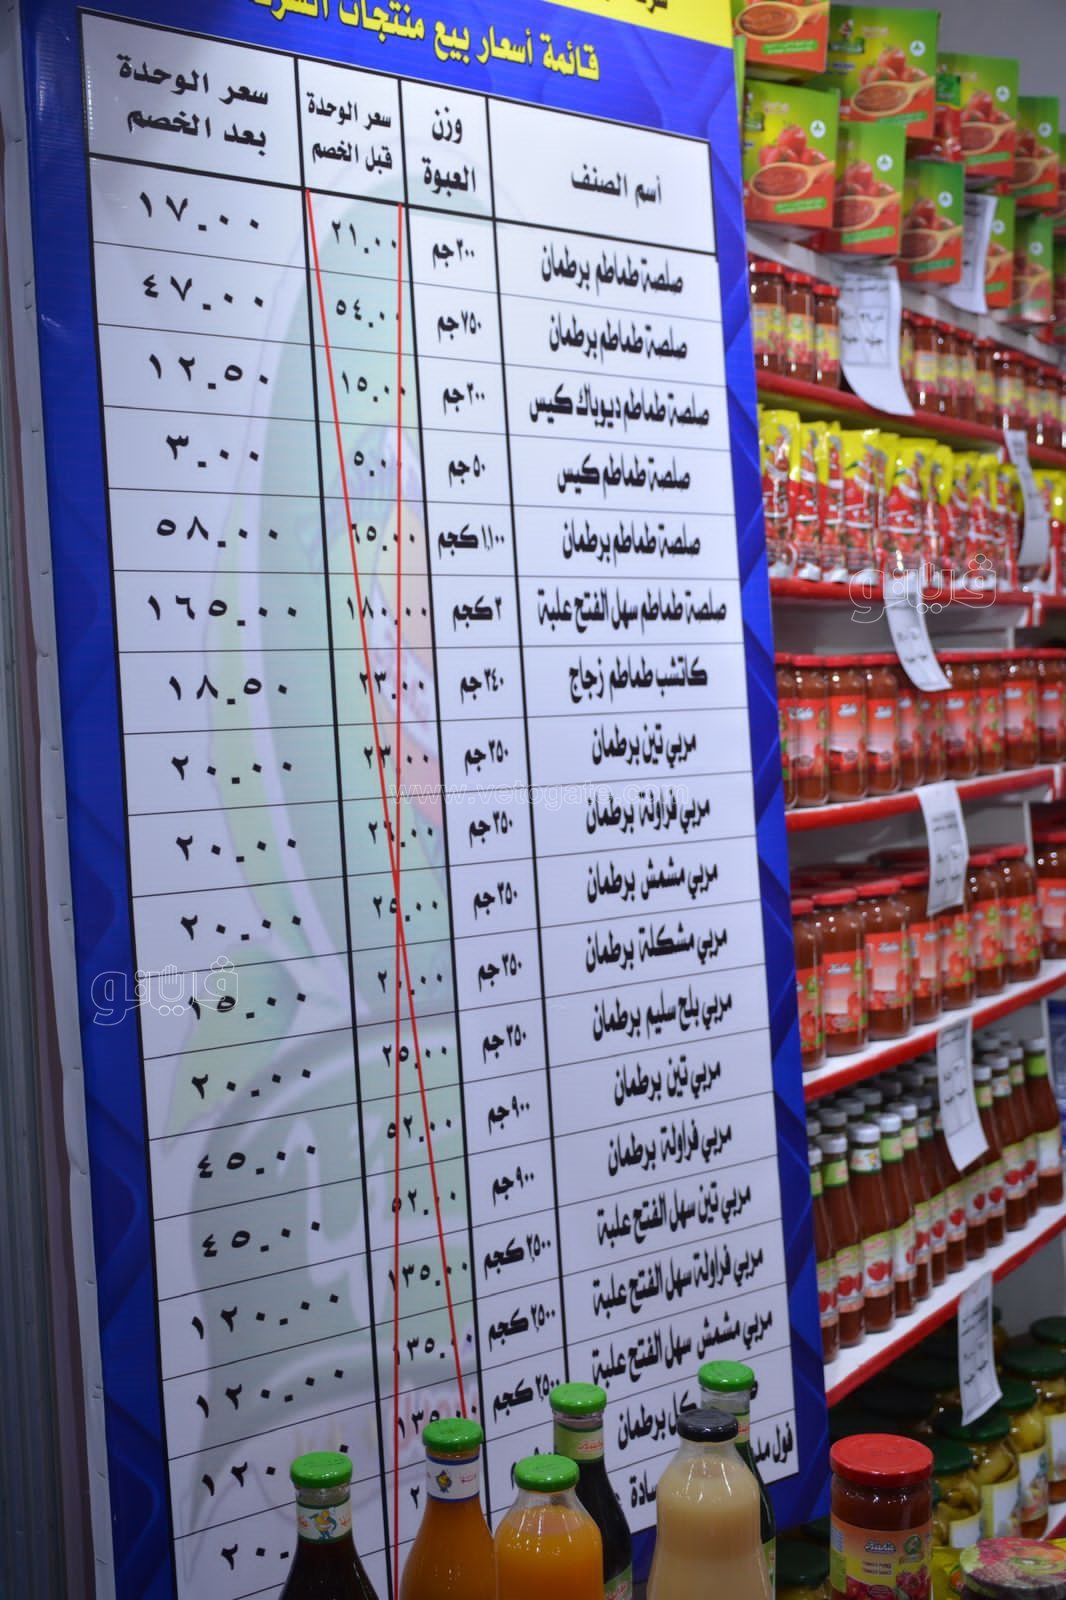 قائمة أسعار بيع منتجات
أسم الصنف وزن العبوة سعر الوحدة قبل الخصم سعر الوحدة بعد الخصم
صلصة طماطم برطمان ٣٠٠ جم ٢١.٠٠ ١٧.٠٠
صلصة طماطم برطمان ٧٥٠ جم ٥٤.٠٠ ٤٧.٠٠
صلصة طماطم ديوباك كيس ٣٠٠ جم ١٥.٠٠ ١٢.٥٠
صلصة طماطم كيس ٥٠ جم ٥.٠٠ ٣.٠٠
صلصة طماطم برطمان ١,١٠٠ كجم ٦٥.٠٠ ٥٨.٠٠
صلصة طماطم سهل الفتح علبة ٣ كجم ١٨٠.٠٠ ١٦٥.٠٠
كاتشب طماطم زجاج ٣٤٠ جم ٢٣.٠٠ ١٨.٥٠
مربي تين برطمان ٣٥٠ جم ٢٣.٠٠ ٢٠.٠٠
مربي فراولة برطمان ٣٥٠ جم ٢٦.٠٠ ٢٠.٠٠
مربي مشمش برطمان ٣٥٠ جم ٢٥.٠٠ ٢٠.٠٠
مربي مشكلة برطمان ٣٥٠ جم ٢٠.٠٠ ١٥.٠٠
مربي بلح سليم برطمان ٣٥٠ جم ٢٥.٠٠ ٢٠.٠٠
مربي تين برطمان ٩٠٠ جم ٥٢.٠٠ ٤٥.٠٠
مربي فراولة برطمان ٩٠٠ جم ٥٢.٠٠ ٤٥.٠٠
مربي تين سهل الفتح علبة ٢,٥٠٠ كجم ١٣٥.٠٠ ١٢٠.٠٠
مربي فراولة سهل الفتح علبة ٢,٥٠٠ كجم ١٣٥.٠٠ ١٢٠.٠٠
مربي مشمش سهل الفتح علبة ٢,٥٠٠ كجم ١٣٥.٠٠
برطمان
فول
سادة
ڤيتو
www.vetogate.com
ڤيتو